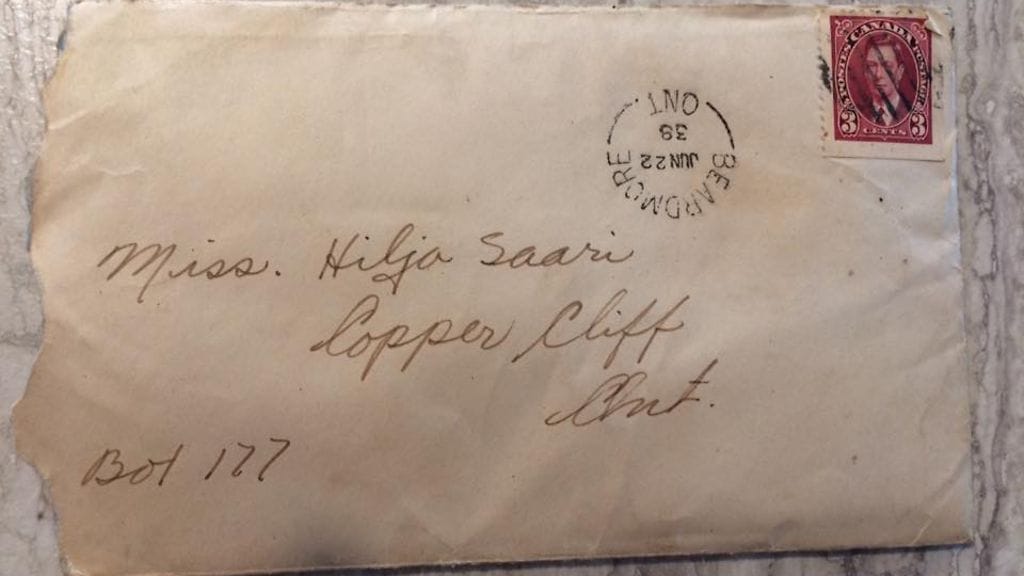 POSTES CANADA POSTAGE
3 CENTS 3
BEARDMORE
JUN 22
39
ONT
Miss. Hilja Saari
Copper Cliff
Ont.
Box 177